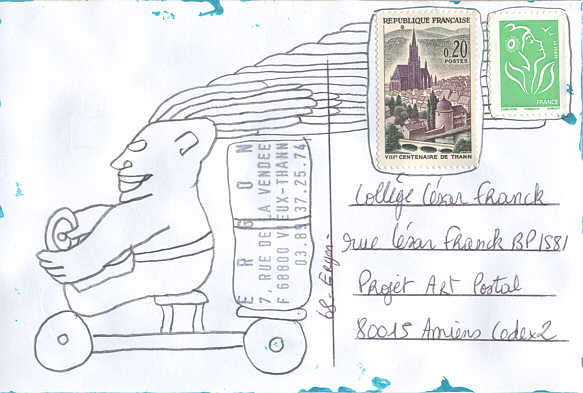 REPUBLIQUE FRANÇAISE
0,20
POSTES
VIIIe CENTENAIRE DE THANN
FRANCE
ERGON
7, RUE DE LA VENDEE
F 68800 VIEUX-THANN
03.89.37.25.74
68-Ergon-
Collège César Franck
rue César Franck BP 1581
Projet Art Postal
80015 Amiens Cedex 2